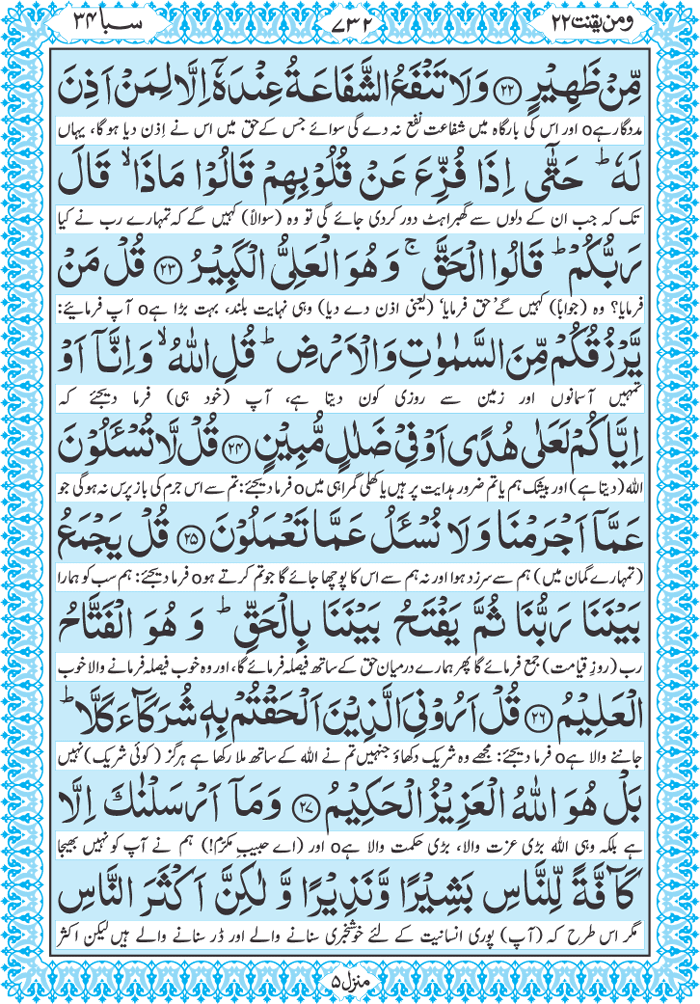 ومن یقنت ۲۲
۷۳۲
سبا ۳۴
مِّنْ ظَهِیْرٍ ﴿۲۲﴾ وَلَا تَنْفَعُ الشَّفَاعَةُ عِنْدَهٗۤ اِلَّا لِمَنْ اَذِنَ
مددگار ہےo اور اس کی بارگاہ میں شفاعت نفع نہ دے گی سوائے جس کے حق میں اس نے اِذن دیا ہو گا، یہاں
لَهٗ ؕ حَتّٰۤی اِذَا فُزِّعَ عَنْ قُلُوْبِهِمْ قَالُوْا مَاذَا ۙ قَالَ
تک کہ جب ان کے دلوں سے گھبراہٹ دور کردی جائے گی تو وہ (سوالاً) کہیں گے کہ تمہارے رب نے کیا
رَبُّكُمْ ؕ قَالُوا الْحَقَّ ۚ وَ هُوَ الْعَلِیُّ الْكَبِیْرُ ﴿۲۳﴾ قُلْ مَنْ
فرمایا؟ وہ (جواباً) کہیں گے ’حق فرمایا‘ (یعنی اذن دے دیا) وہی نہایت بلند، بہت بڑا ہےo آپ فرمایئے:
یَّرْزُقُكُمْ مِّنَ السَّمٰوٰتِ وَ الْاَرْضِ ؕ قُلِ اللّٰهُ ۙ وَ اِنَّاۤ اَوْ
تمہیں آسمانوں اور زمین سے روزی کون دیتا ہے، آپ (خود ہی) فرما دیجئے کہ
اِیَّاكُمْ لَعَلٰی هُدًی اَوْ فِیْ ضَلٰلٍ مُّبِیْنٍ ﴿۲۴﴾ قُلْ لَّا تُسْـَٔلُوْنَ
اللہ (دیتا ہے) اور بیشک ہم یا تم ضرور ہدایت پر ہیں یا کھلی گمراہی میںo فرما دیجئے: تم سے اس جرم کی باز پرس نہ ہوگی جو
عَمَّاۤ اَجْرَمْنَا وَ لَا نُسْـَٔلُ عَمَّا تَعْمَلُوْنَ ﴿۲۵﴾ قُلْ یَجْمَعُ
(تمہارے گمان میں) ہم سے سرزد ہوا اور نہ ہم سے اس کا پوچھا جائے گا جو تم کرتے ہوo فرما دیجئے: ہم سب کو ہمارا
بَیْنَنَا رَبُّنَا ثُمَّ یَفْتَحُ بَیْنَنَا بِالْحَقِّ ؕ وَ هُوَ الْفَتَّاحُ
رب (روزِ قیامت) جمع فرمائے گا پھر ہمارے درمیان حق کے ساتھ فیصلہ فرمائے گا، اور وہ خوب فیصلہ فرمانے والا خوب
الْعَلِیْمُ ﴿۲۶﴾ قُلْ اَرُوْنِیَ الَّذِیْنَ اَلْحَقْتُمْ بِهٖ شُرَكَآءَ كَلَّا ؕ
جاننے والا ہےo فرما دیجئے: مجھے وہ شریک دکھاؤ جنہیں تم نے اللہ کے ساتھ ملا رکھا ہے ہرگز (کوئی شریک) نہیں
بَلْ هُوَ اللّٰهُ الْعَزِیْزُ الْحَكِیْمُ ﴿۲۷﴾ وَ مَاۤ اَرْسَلْنٰكَ اِلَّا
ہے بلکہ وہی اللہ بڑی عزت والا، بڑی حکمت والا ہےo اور (اے حبیبِ مکرّم!) ہم نے آپ کو نہیں بھیجا
كَآفَّةً لِّلنَّاسِ بَشِیْرًا وَّ نَذِیْرًا وَّ لٰكِنَّ اَكْثَرَ النَّاسِ
مگر اس طرح کہ (آپ) پوری انسانیت کے لئے خوشخبری سنانے والے اور ڈر سنانے والے ہیں لیکن اکثر
منزل ۵